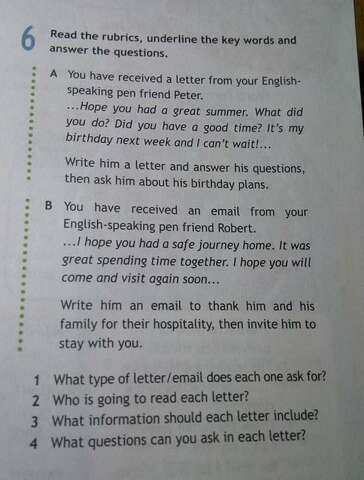 6 Read the rubrics, underline the key words and
answer the questions.
A You have received a letter from your English-
speaking pen friend Peter.
...Hope you had a great summer. What did
you do? Did you have a good time? It's my
birthday next week and I can't wait!...
Write him a letter and answer his questions,
then ask him about his birthday plans.
B You have received an email from your
English-speaking pen friend Robert.
...I hope you had a safe journey home. It was
great spending time together. I hope you will
come and visit again soon...
Write him an email to thank him and his
family for their hospitality, then invite him to
stay with you.
1 What type of letter/email does each one ask for?
2 Who is going to read each letter?
3 What information should each letter include?
4 What questions can you ask in each letter?